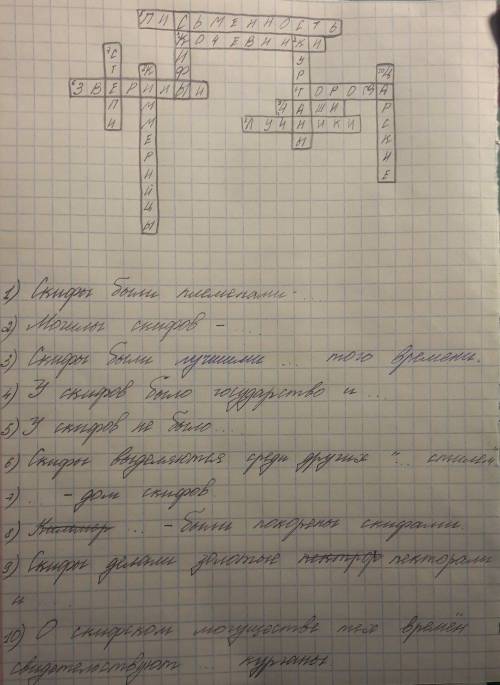 ПИСЬМЕННОСТЬ
КОЧЕВНИКИ
СКИФЫ
КУРГАНЫ
СТЕПИ
КИММЕРИЙЦЫ
ЦАРСКИЕ
ЧАШИ
ЛУЧНИКИ
1) Скифы были племенами - ...
2) Могилы скифов - ...
3) Скифы были лучшими ... того времени.
4) У скифов было государство и ...
5) У скифов не было ...
6) Скифы выделяются среди других "... стилем
7) ... - дом скифов
8) ... - были покорены скифами
9) Скифы делали золотые пекторали
и
10) О скифском могуществе тех времён
свидетельствуют ... курганы